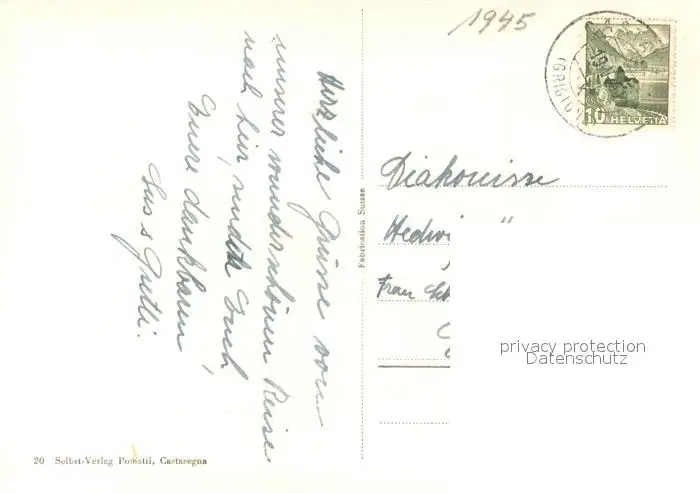 1945
(GRIGIO
10 HELVETIA
Herzliche Grüsse von
unserer wunderschönen Reise
nach hier, sendet Euch,
Euere dankbaren
Sus s Gutti.
Fabrication Suisse
Diakonisse
Hedwi "
Frau
privacy protection
Datenschutz
20 Selbst-Verlag Pomatti, Castasegna